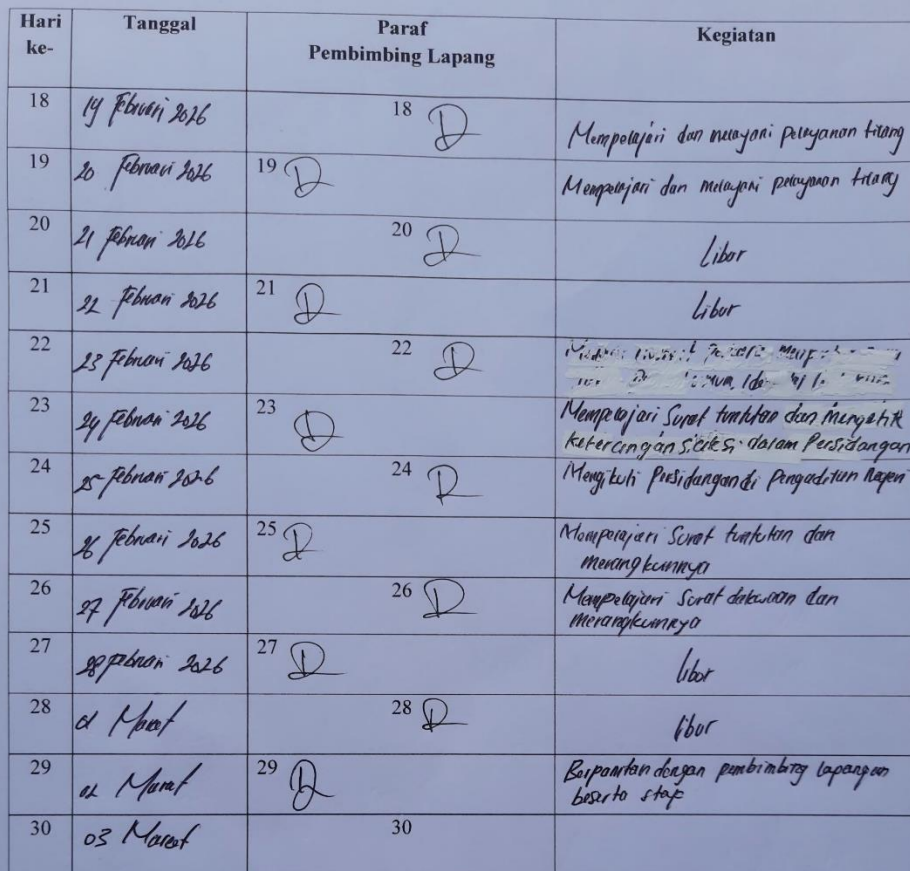 Hari ke- Tanggal Paraf Pembimbing Lapang Kegiatan
18 19 Februari 2026 18 Mempelajari dan melayani pelayanan tilang
19 20 Februari 2026 19 Mempelajari dan melayani pelayanan tilang
20 21 Februari 2026 20 Libur
21 22 Februari 2026 21 Libur
22 23 Februari 2026 22
23 24 Februari 2026 23 Mempelajari Surat tuntutan dan Mengetik
keterangan saksi dalam Persidangan
24 25 Februari 2026 24 Mengikuti Persidangan di Pengadilan Negeri
25 26 Februari 2026 25 Mempelajari Surat tuntutan dan
merangkumnya
26 27 Februari 2026 26 Mempelajari Surat dakwaan dan
merangkumnya
27 28 Februari 2026 27 libur
28 01 Maret 28 libur
29 02 Maret 29 Berpamitan dengan pembimbing lapangan
beserta staf
30 03 Maret 30